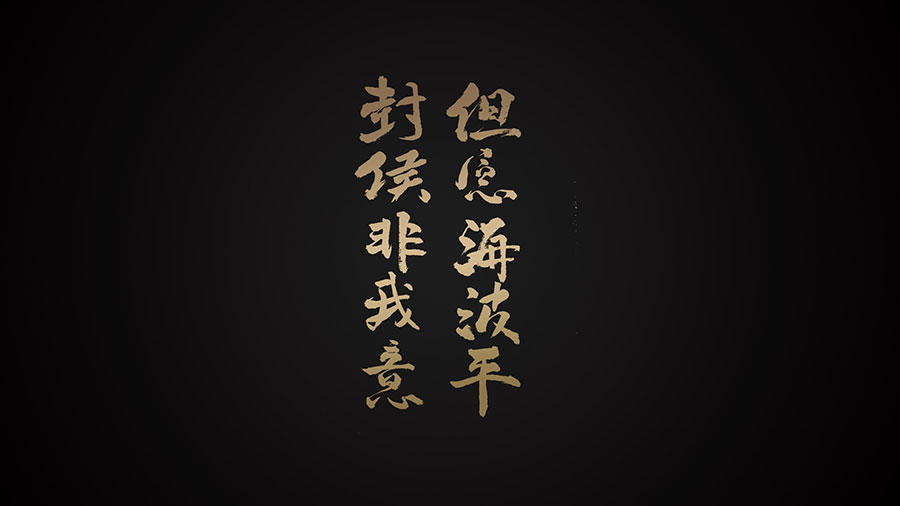 封侯非我意
但愿海波平